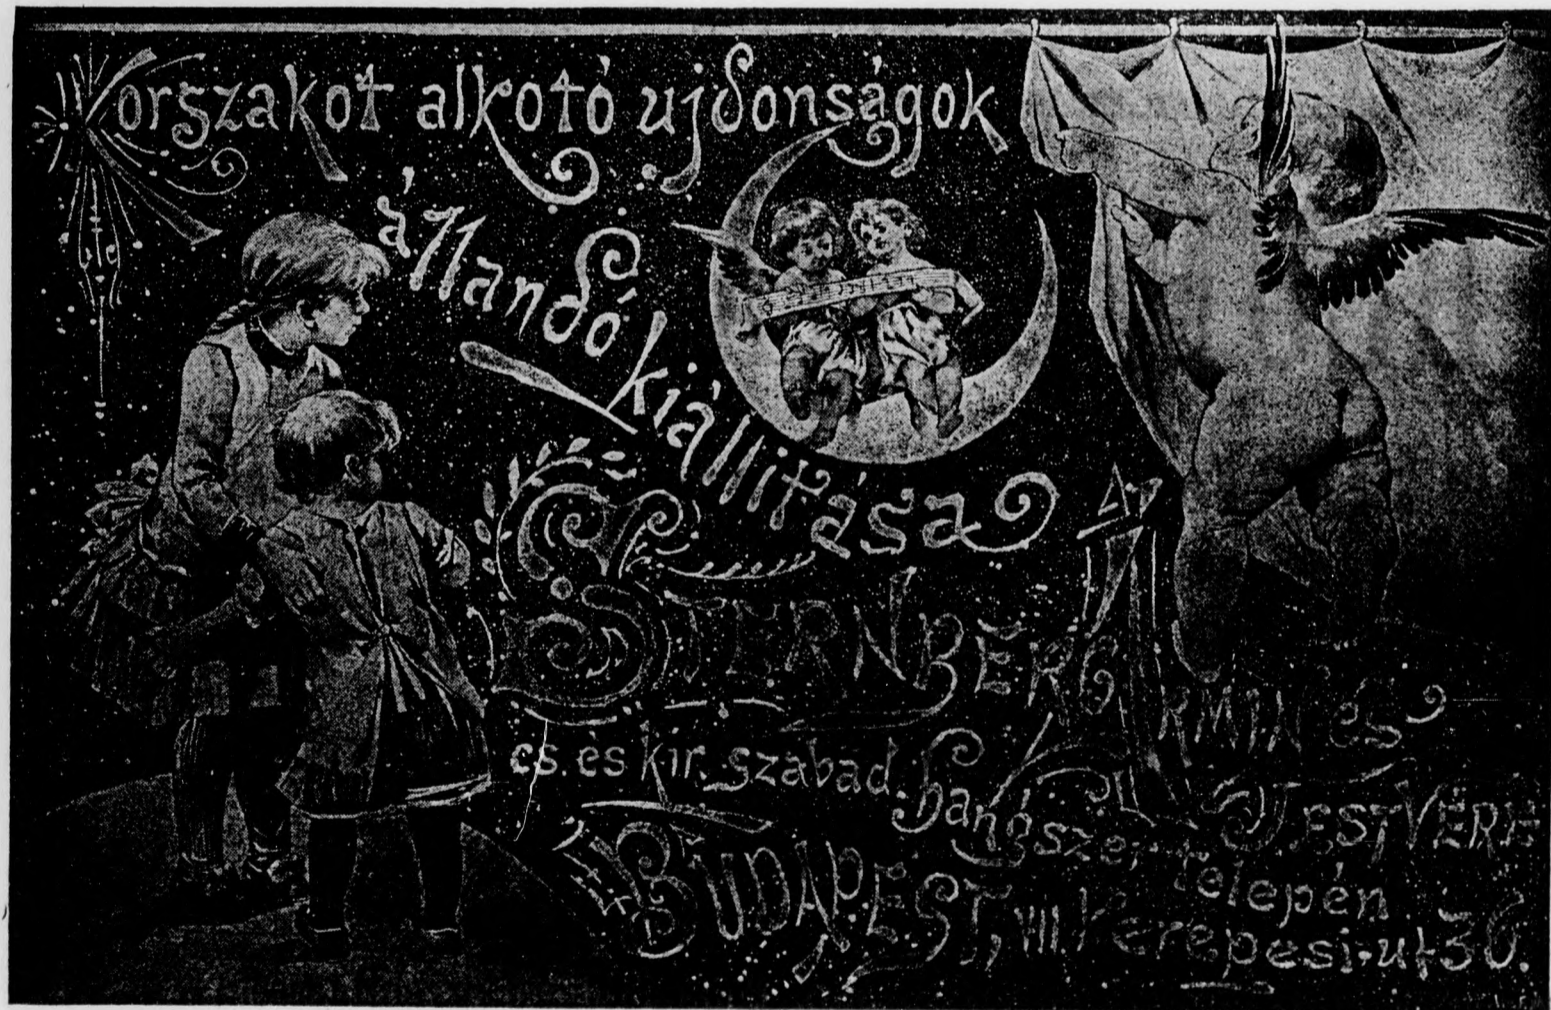 Korszakot alkotó ujdonságok
állandó
kiállitása
STERNBERG ÁRMIN és
TESTVÉRE
cs. és kir. szabad. hangszer-telepén
BUDAPEST, VII. Kerepesi-ut 36.